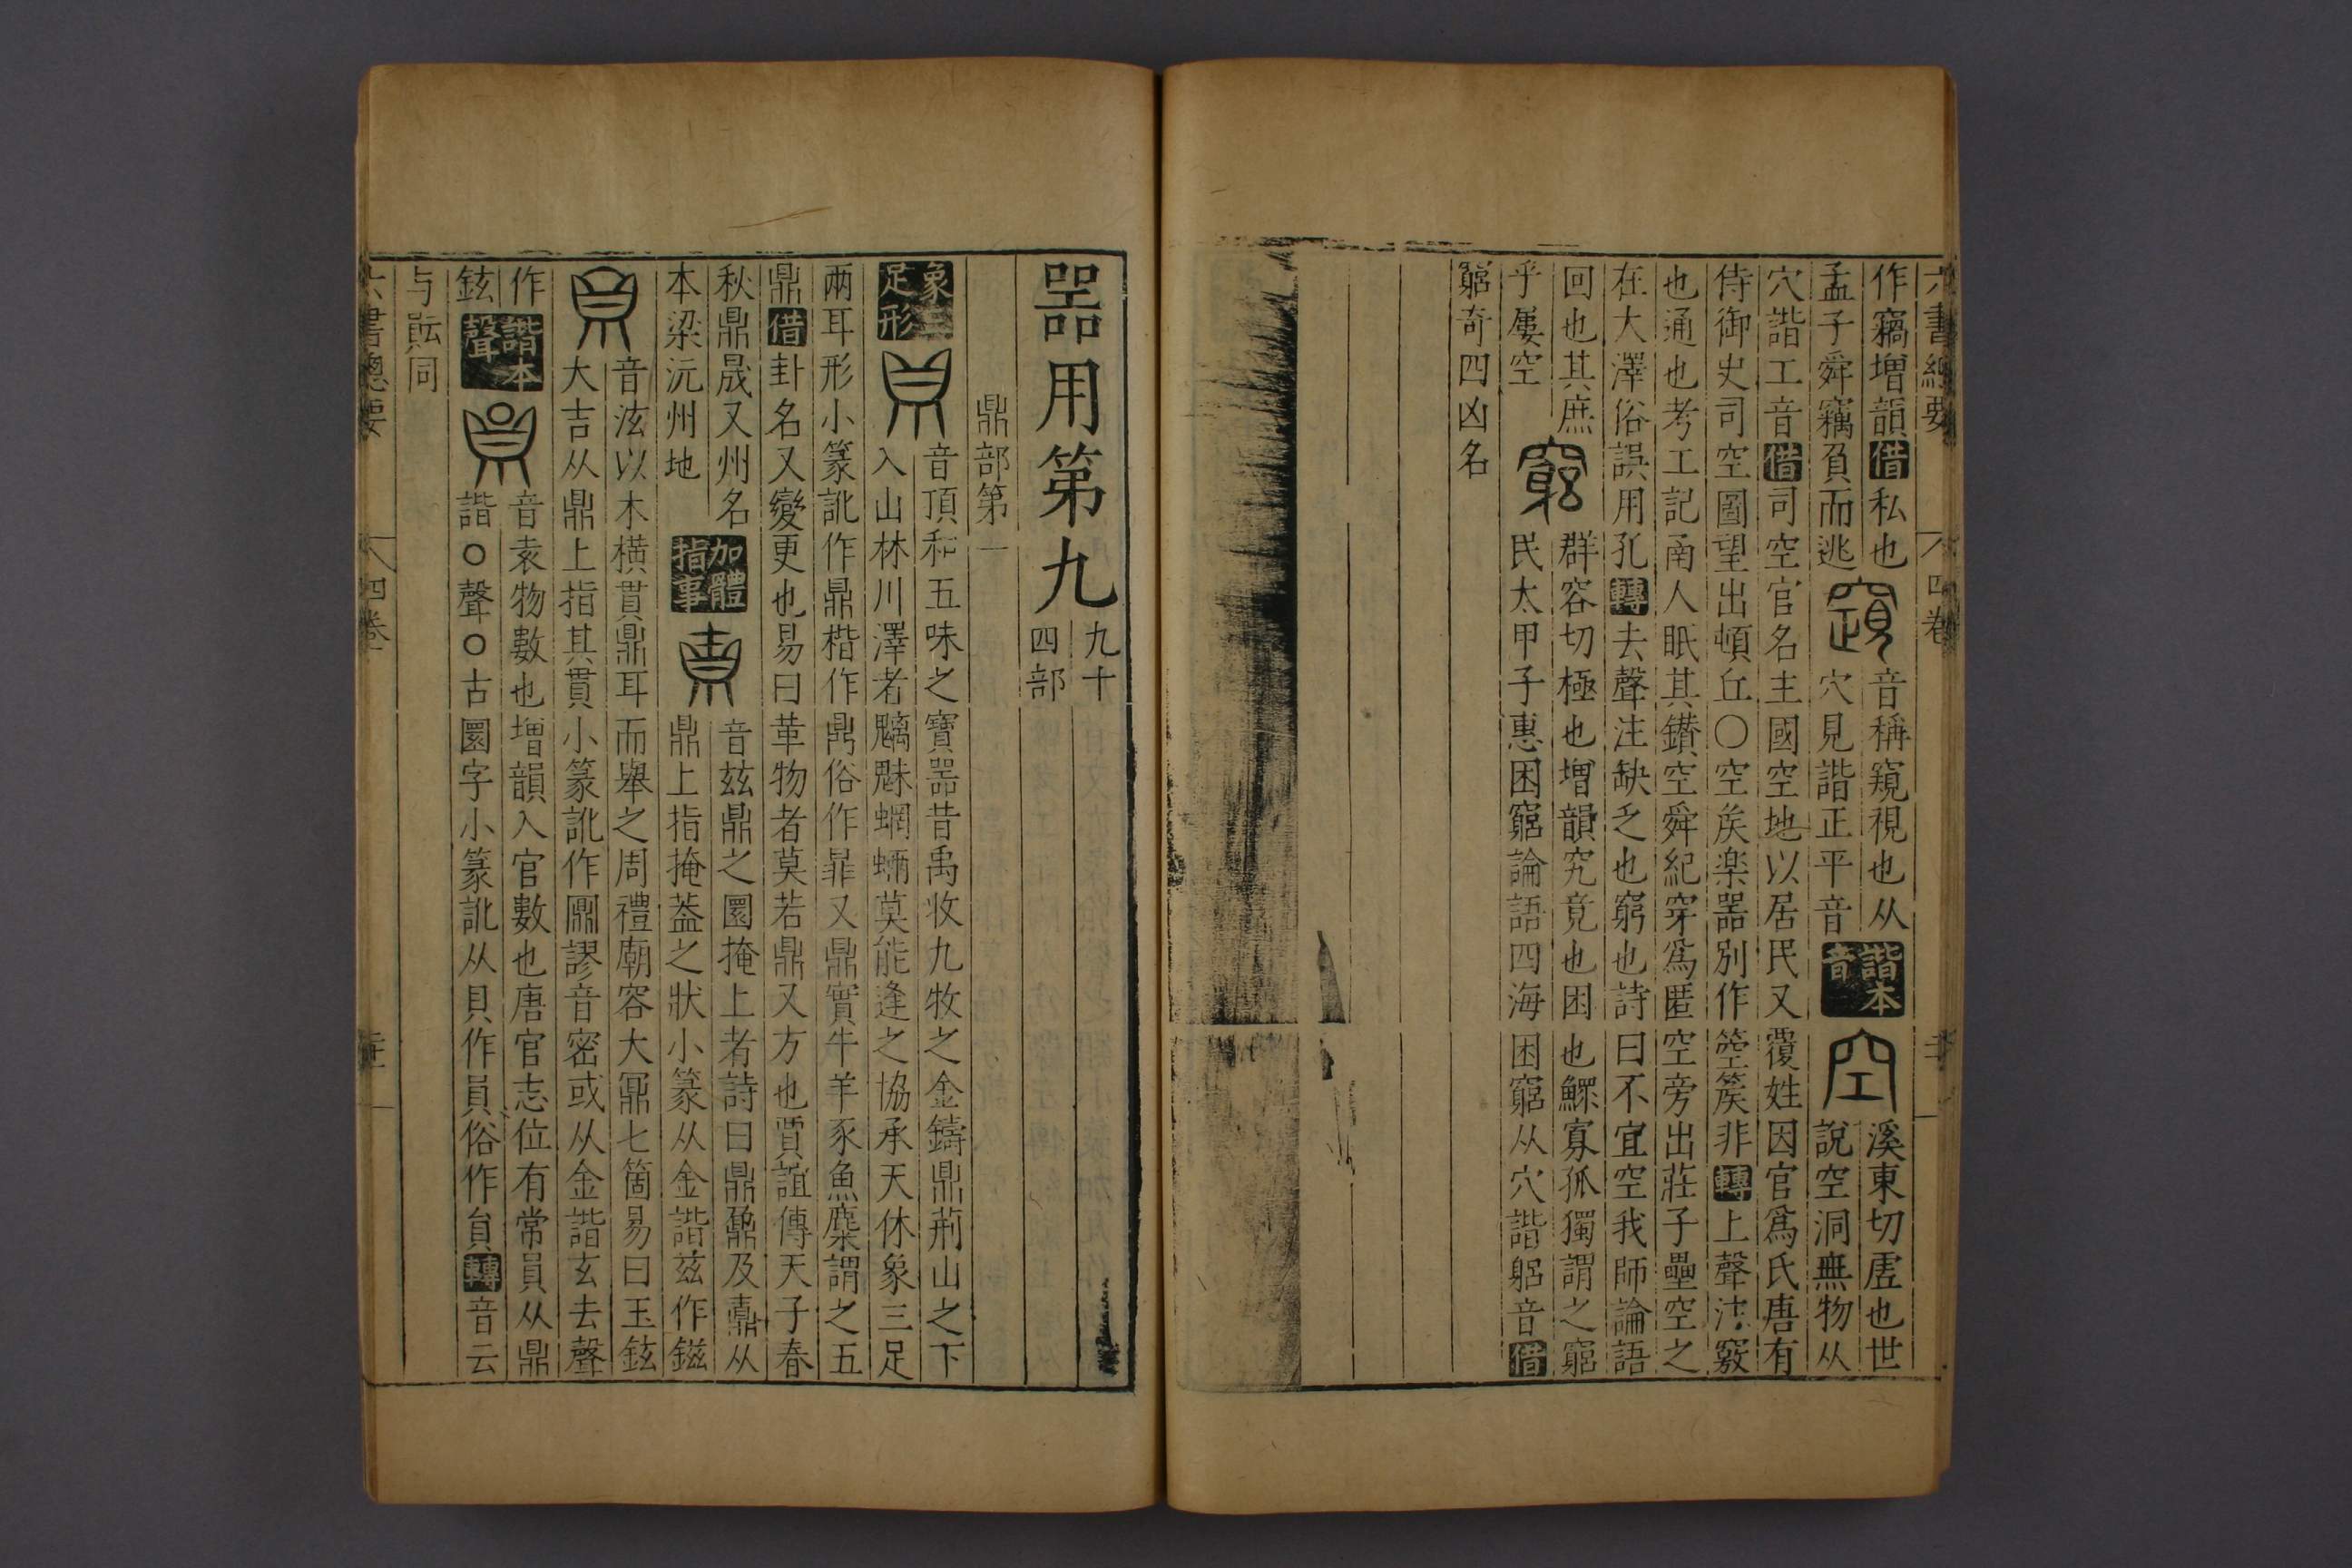 六書總要 四卷
作竊增韻借私也 音稱窺視也从諧本音 溪東切虗也世
孟子舜竊負而逃 穴見諧正平音 說空洞無物从
穴諧工音借司空官名主國空地以居民又覆姓因官爲氏唐有
侍御史司空圖望出頓丘○空矦楽噐別作箜篌非轉上聲注竅
也通也考工記凾人眂其鑚空舜紀穿爲匿空旁出莊子壘空之
在大澤俗誤用孔轉去聲注缺乏也窮也詩曰不宜空我師論語
回也其庶 群容切極也增韻究竟也困也鰥寡孤獨謂之窮
乎屢空 窮 民太甲子惠困窮論語四海困窮从穴諧躳音借
窮奇四凶名
噐用第九 九十四部
鼎部第一
象三足形 音頂和五味之寶噐昔禹收九牧之金鑄鼎荊山之下
入山林川澤者魑魅蝄蜽莫能逢之協承天休象三足
兩耳形小篆訛作鼎楷作鼎俗作鼑又鼎實牛羊豕魚麋謂之五
鼎借卦名又變更也易曰革物者莫若鼎又方也賈誼傳天子春
秋鼎晟又州名 音兹鼎之圜掩上者詩曰鼎鼐及鼒从
本梁沅州地 加體指事 鼎上指掩葢之狀小篆从金諧兹作鎡
音泫以木橫貫鼎耳而舉之周禮廟容大鼏七箇易曰玉鉉
大吉从鼎上指其貫小篆訛作鼏謬音密或从金諧玄去聲
作 音袁物數也增韻入官數也唐官志位有常員从鼎
鉉 諧本聲 諧○聲○古圜字小篆訛从貝作員俗作貟轉音云
与䝩同
六書總要 四卷